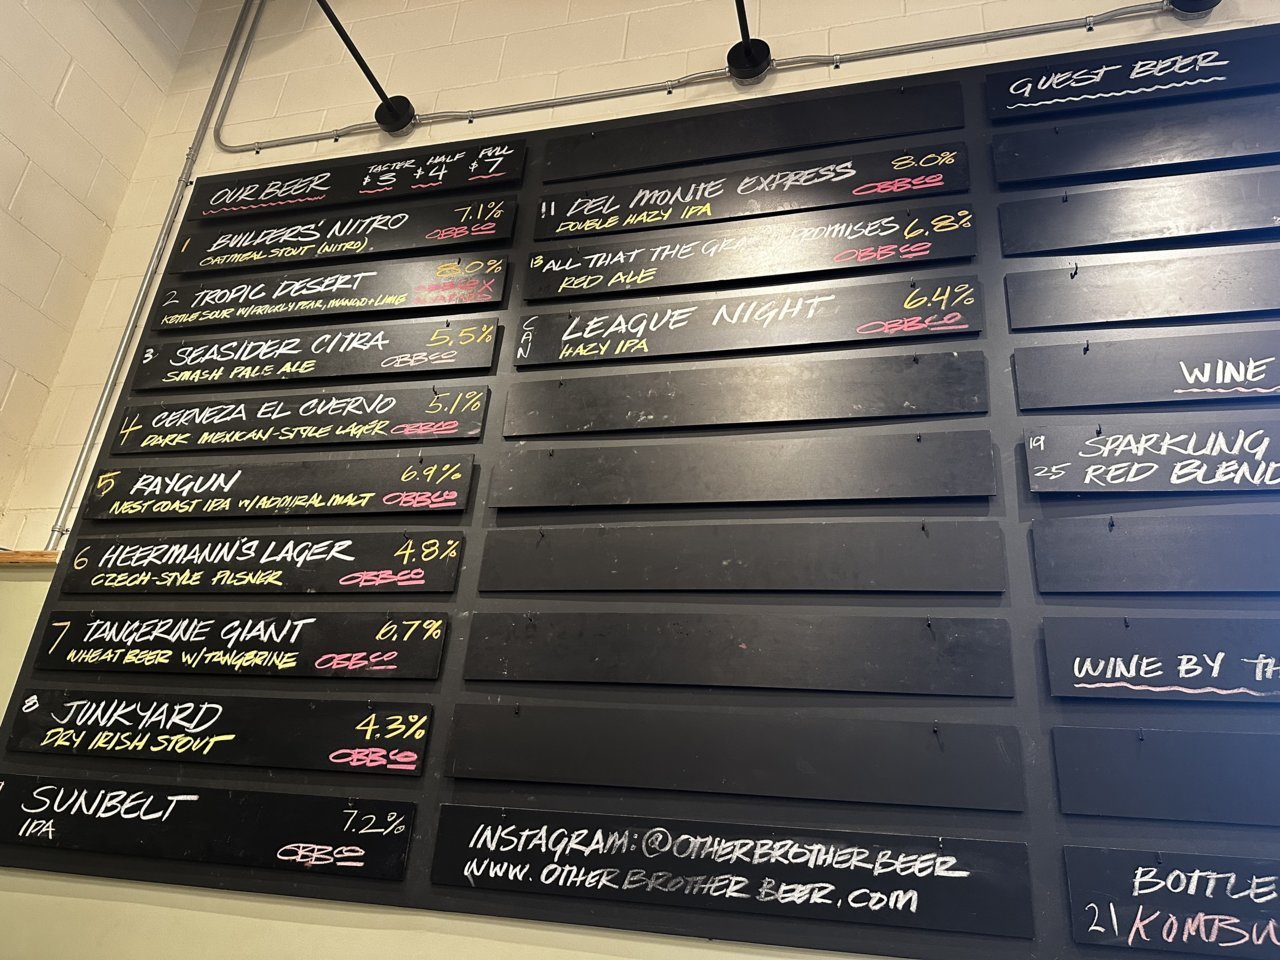 OUR BEER
TASTER HALF FULL
$3 $4 $7
1 BUILDERS' NITRO 7.1%
OATMEAL STOUT (NITRO) OBBCO
2 TROPIC DESERT 8.0%
KETTLE SOUR W/PRICKLY PEAR, MANGO + LIME OBBCO X
3 SEASIDER CITRA 5.5%
SMASH PALE ALE OBBCO
4 CERVEZA EL CUERVO 5.1%
DARK MEXICAN-STYLE LAGER OBBCO
5 RAYGUN 6.9%
WEST COAST IPA W/ADMIRAL MALT OBBCO
6 HEERMANN'S LAGER 4.8%
CZECH-STYLE PILSNER OBBCO
7 TANGERINE GIANT 6.7%
WHEAT BEER W/TANGERINE OBBCO
8 JUNKYARD 4.3%
DRY IRISH STOUT OBBCO
SUNBELT 7.2%
IPA OBBCO
11 DEL MONTE EXPRESS 8.0%
DOUBLE HAZY IPA OBBCO
13 ALL THAT THE PROMISES 6.8%
RED ALE OBBCO
CAN LEAGUE NIGHT 6.4%
HAZY IPA OBBCO
INSTAGRAM: @OTHERBROTHERBEER
WWW.OTHERBROTHERBEER.COM
GUEST BEER
WINE
19 SPARKLING
25 RED BLEND
WINE BY TH
BOTTLE
21 KOMBU